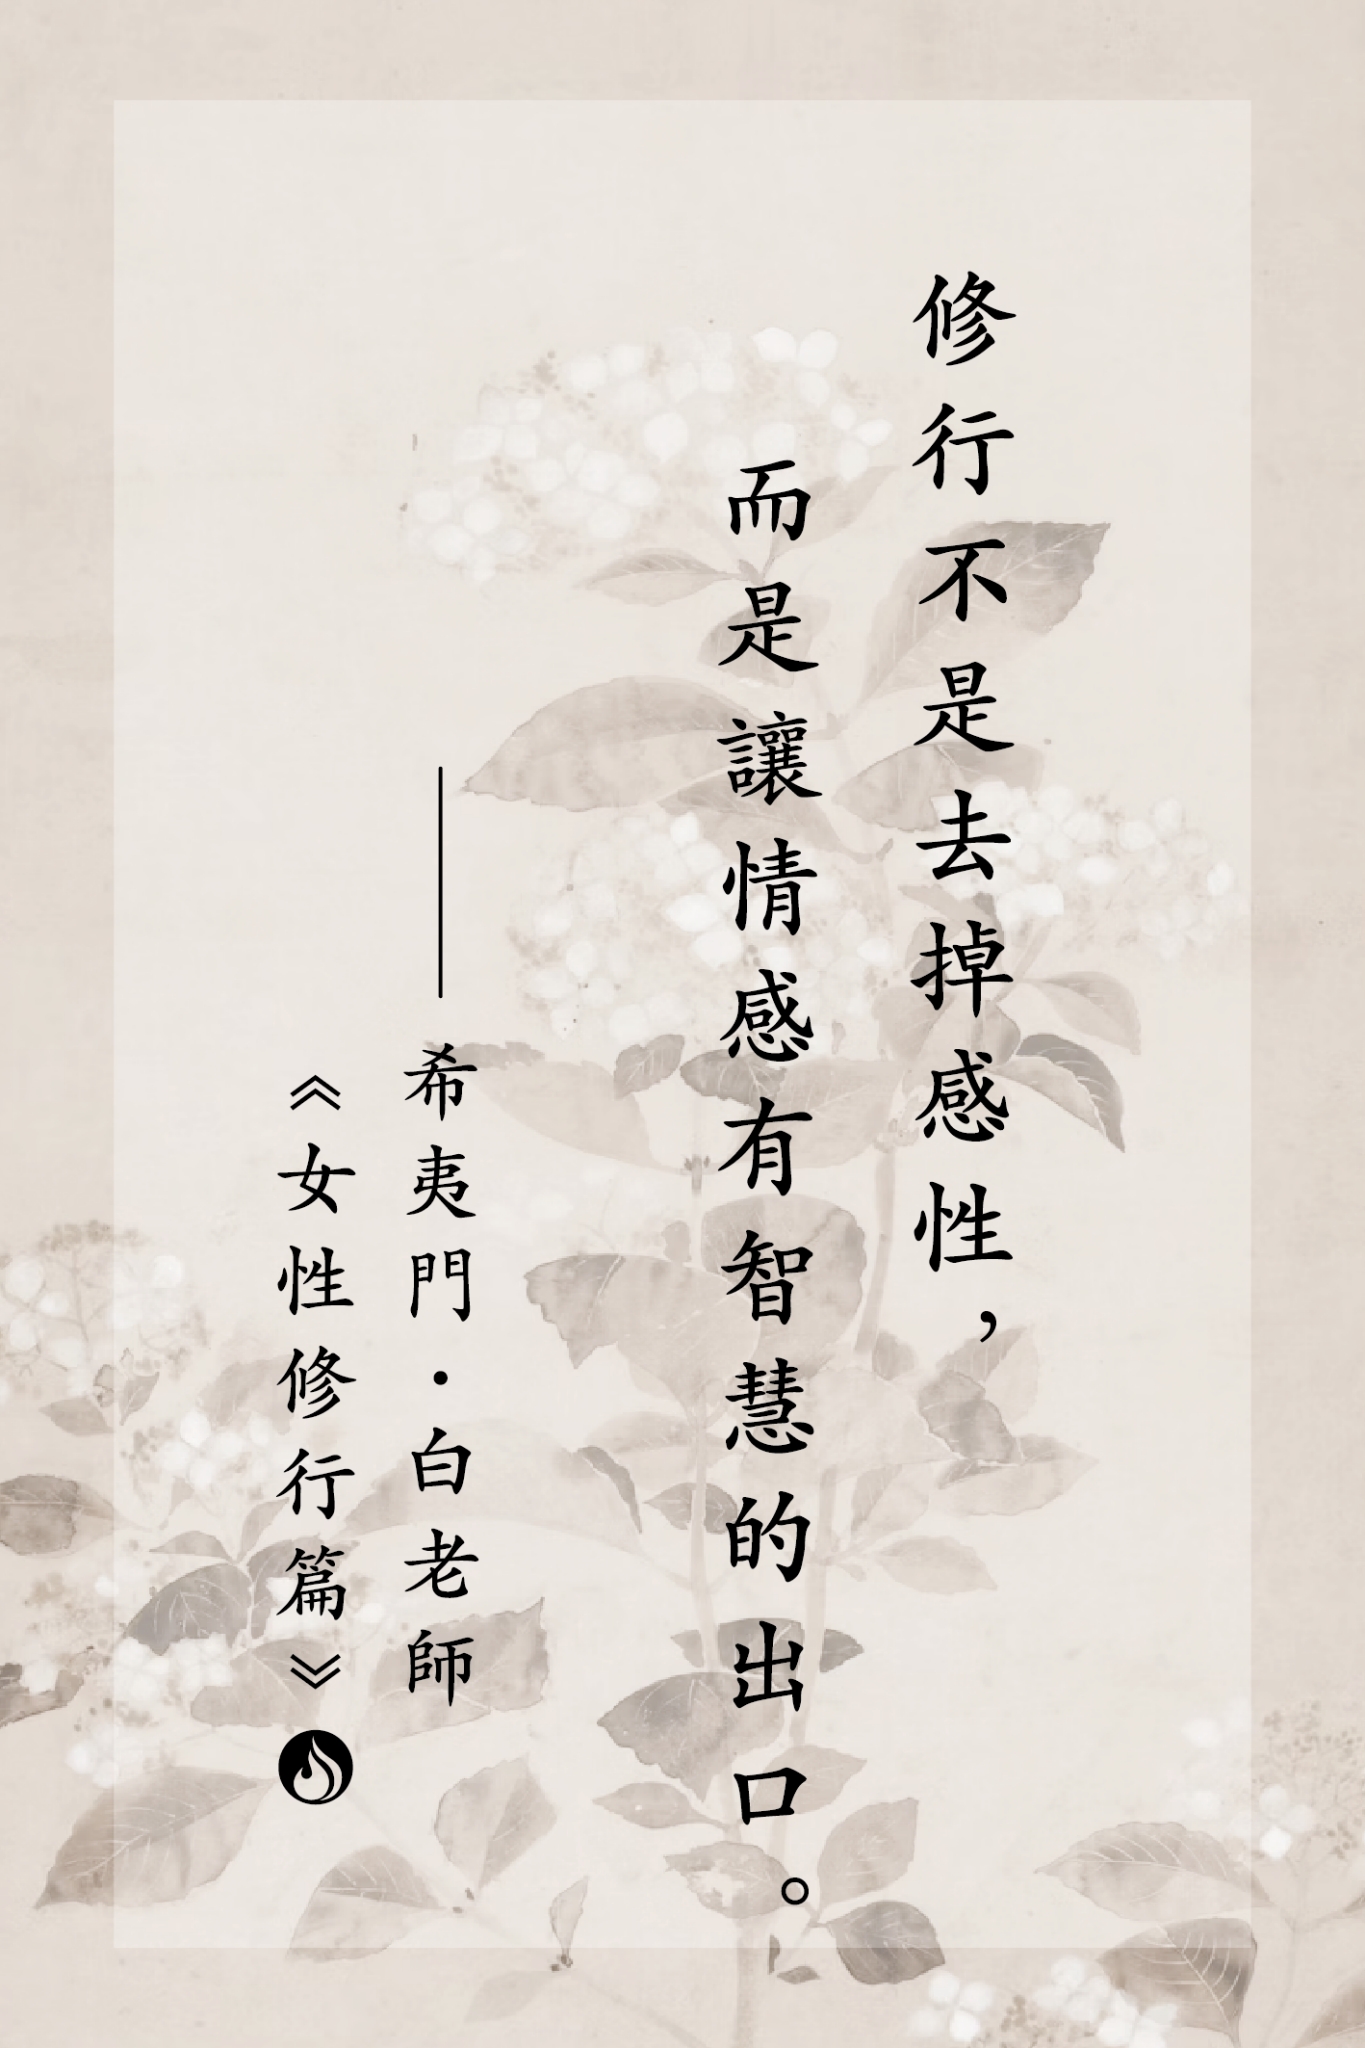 修行不是去掉感性，
而是讓情感有智慧的出口。
——希夷門·白老師
《女性修行篇》